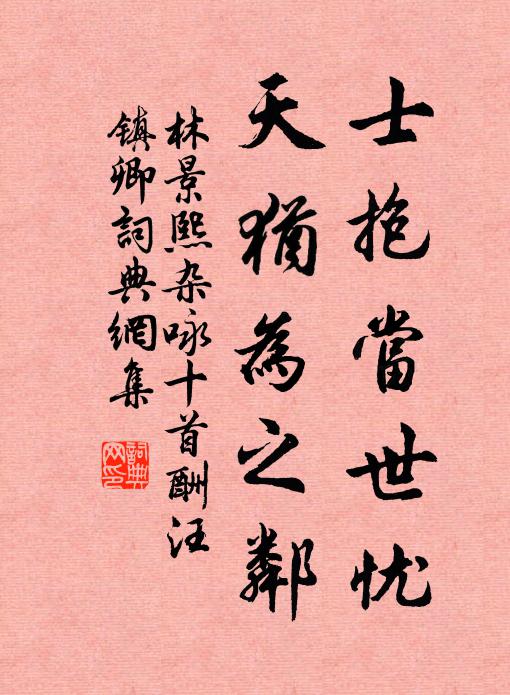 士抱當世忧
天猶為之鄰
林景熙杂咏十首酬汪
鎮卿詞典網集
詞典網印